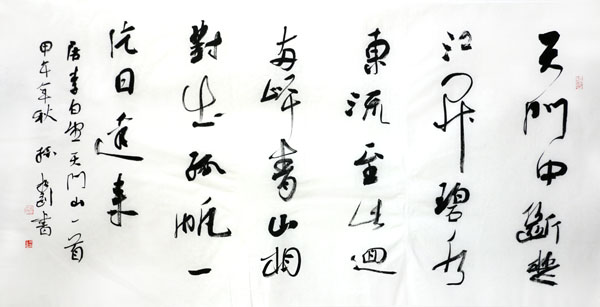 天門中斷楚
江開碧水
東流至此迴
兩岸青山相
對出孤帆一
片日邊來
唐李白望天門山一首
甲午年秋 書